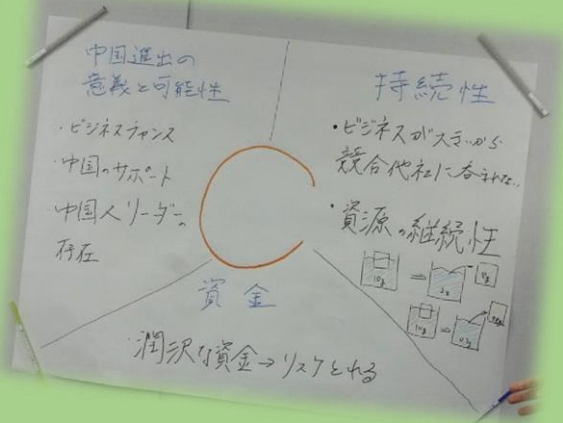 中国進出の
意義と可能性
・ビジネスチャンス
・中国のサポート
中国人リーダーの
存在
持続性
・ビジネスが大きいから
競合他社に呑まれない
・資源の継続性
資金
・潤沢な資金→リスクとれる